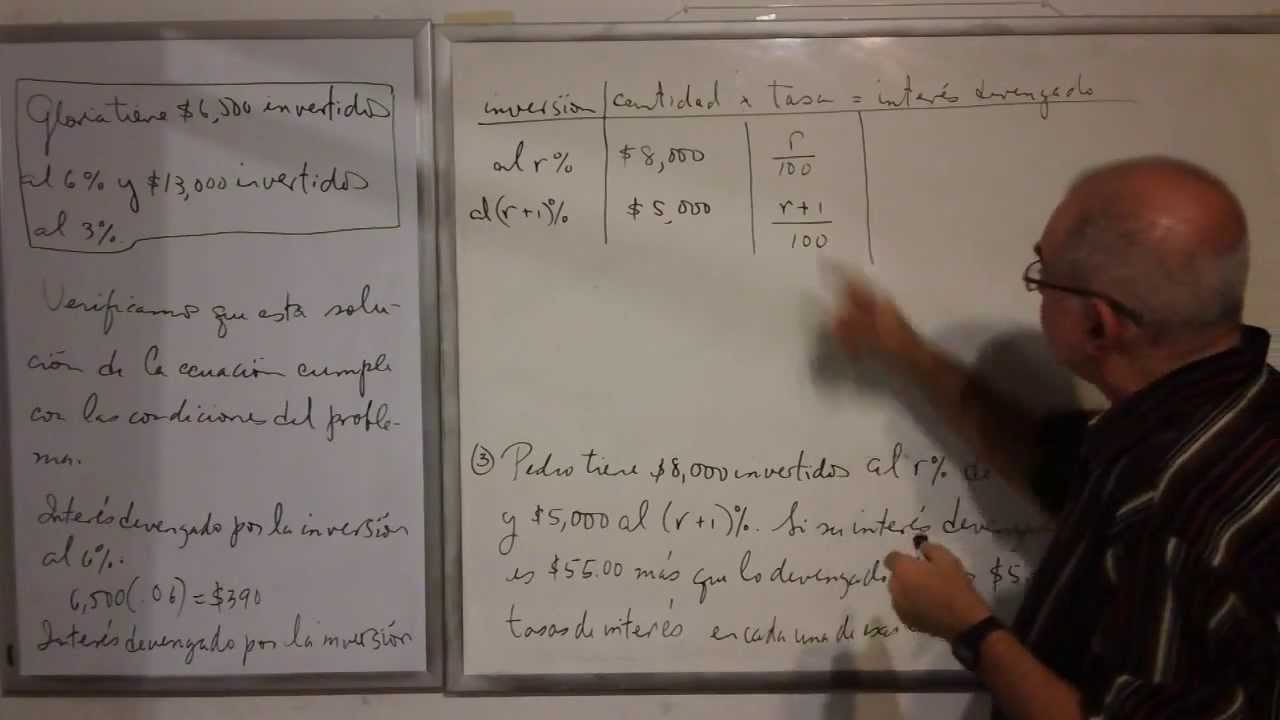 Gloria tiene $6,500 invertidos
al 6% y $13,000 invertidos
al 3%.
Verificamos que esta solu-
ción de la ecuación cumple
con las condiciones del proble-
ma.
Interés devengado por la inversión
al 6%.
6,500(.06) = $390
Interés devengado por la inversión
inversión | cantidad x tasa = interés devengado
al r% | $8,000 | r/100
al (r+1)% | $5,000 | r+1/100
③ Pedro tiene $8,000 invertidos al r% de
y $5,000 al (r+1)%. Si su interés
es $55.00 más que lo devengado
tasas de interés en cada una de